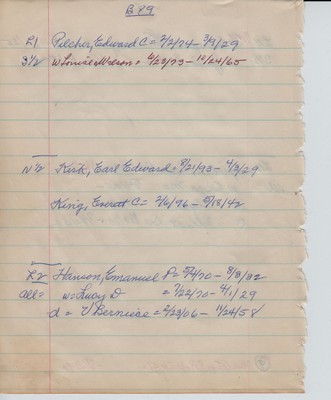 B 89
L1 Pilcher, Edward C = 2/2/74 – 3/9/29
S 1/2 w Louise Melson = 6/23/73 – 11/24/65
N 1/2 Kirk, Earl Edward = 8/21/93 – 4/3/29
King, Everett C = 2/6/96 – 9/18/42
L2 Hanson, Emanuel P = 5/4/70 – 8/8/32
all = w = Lucy D = 7/22/70 – 4/1/29
d = V Berniece = 2/23/06 – 11/24/58